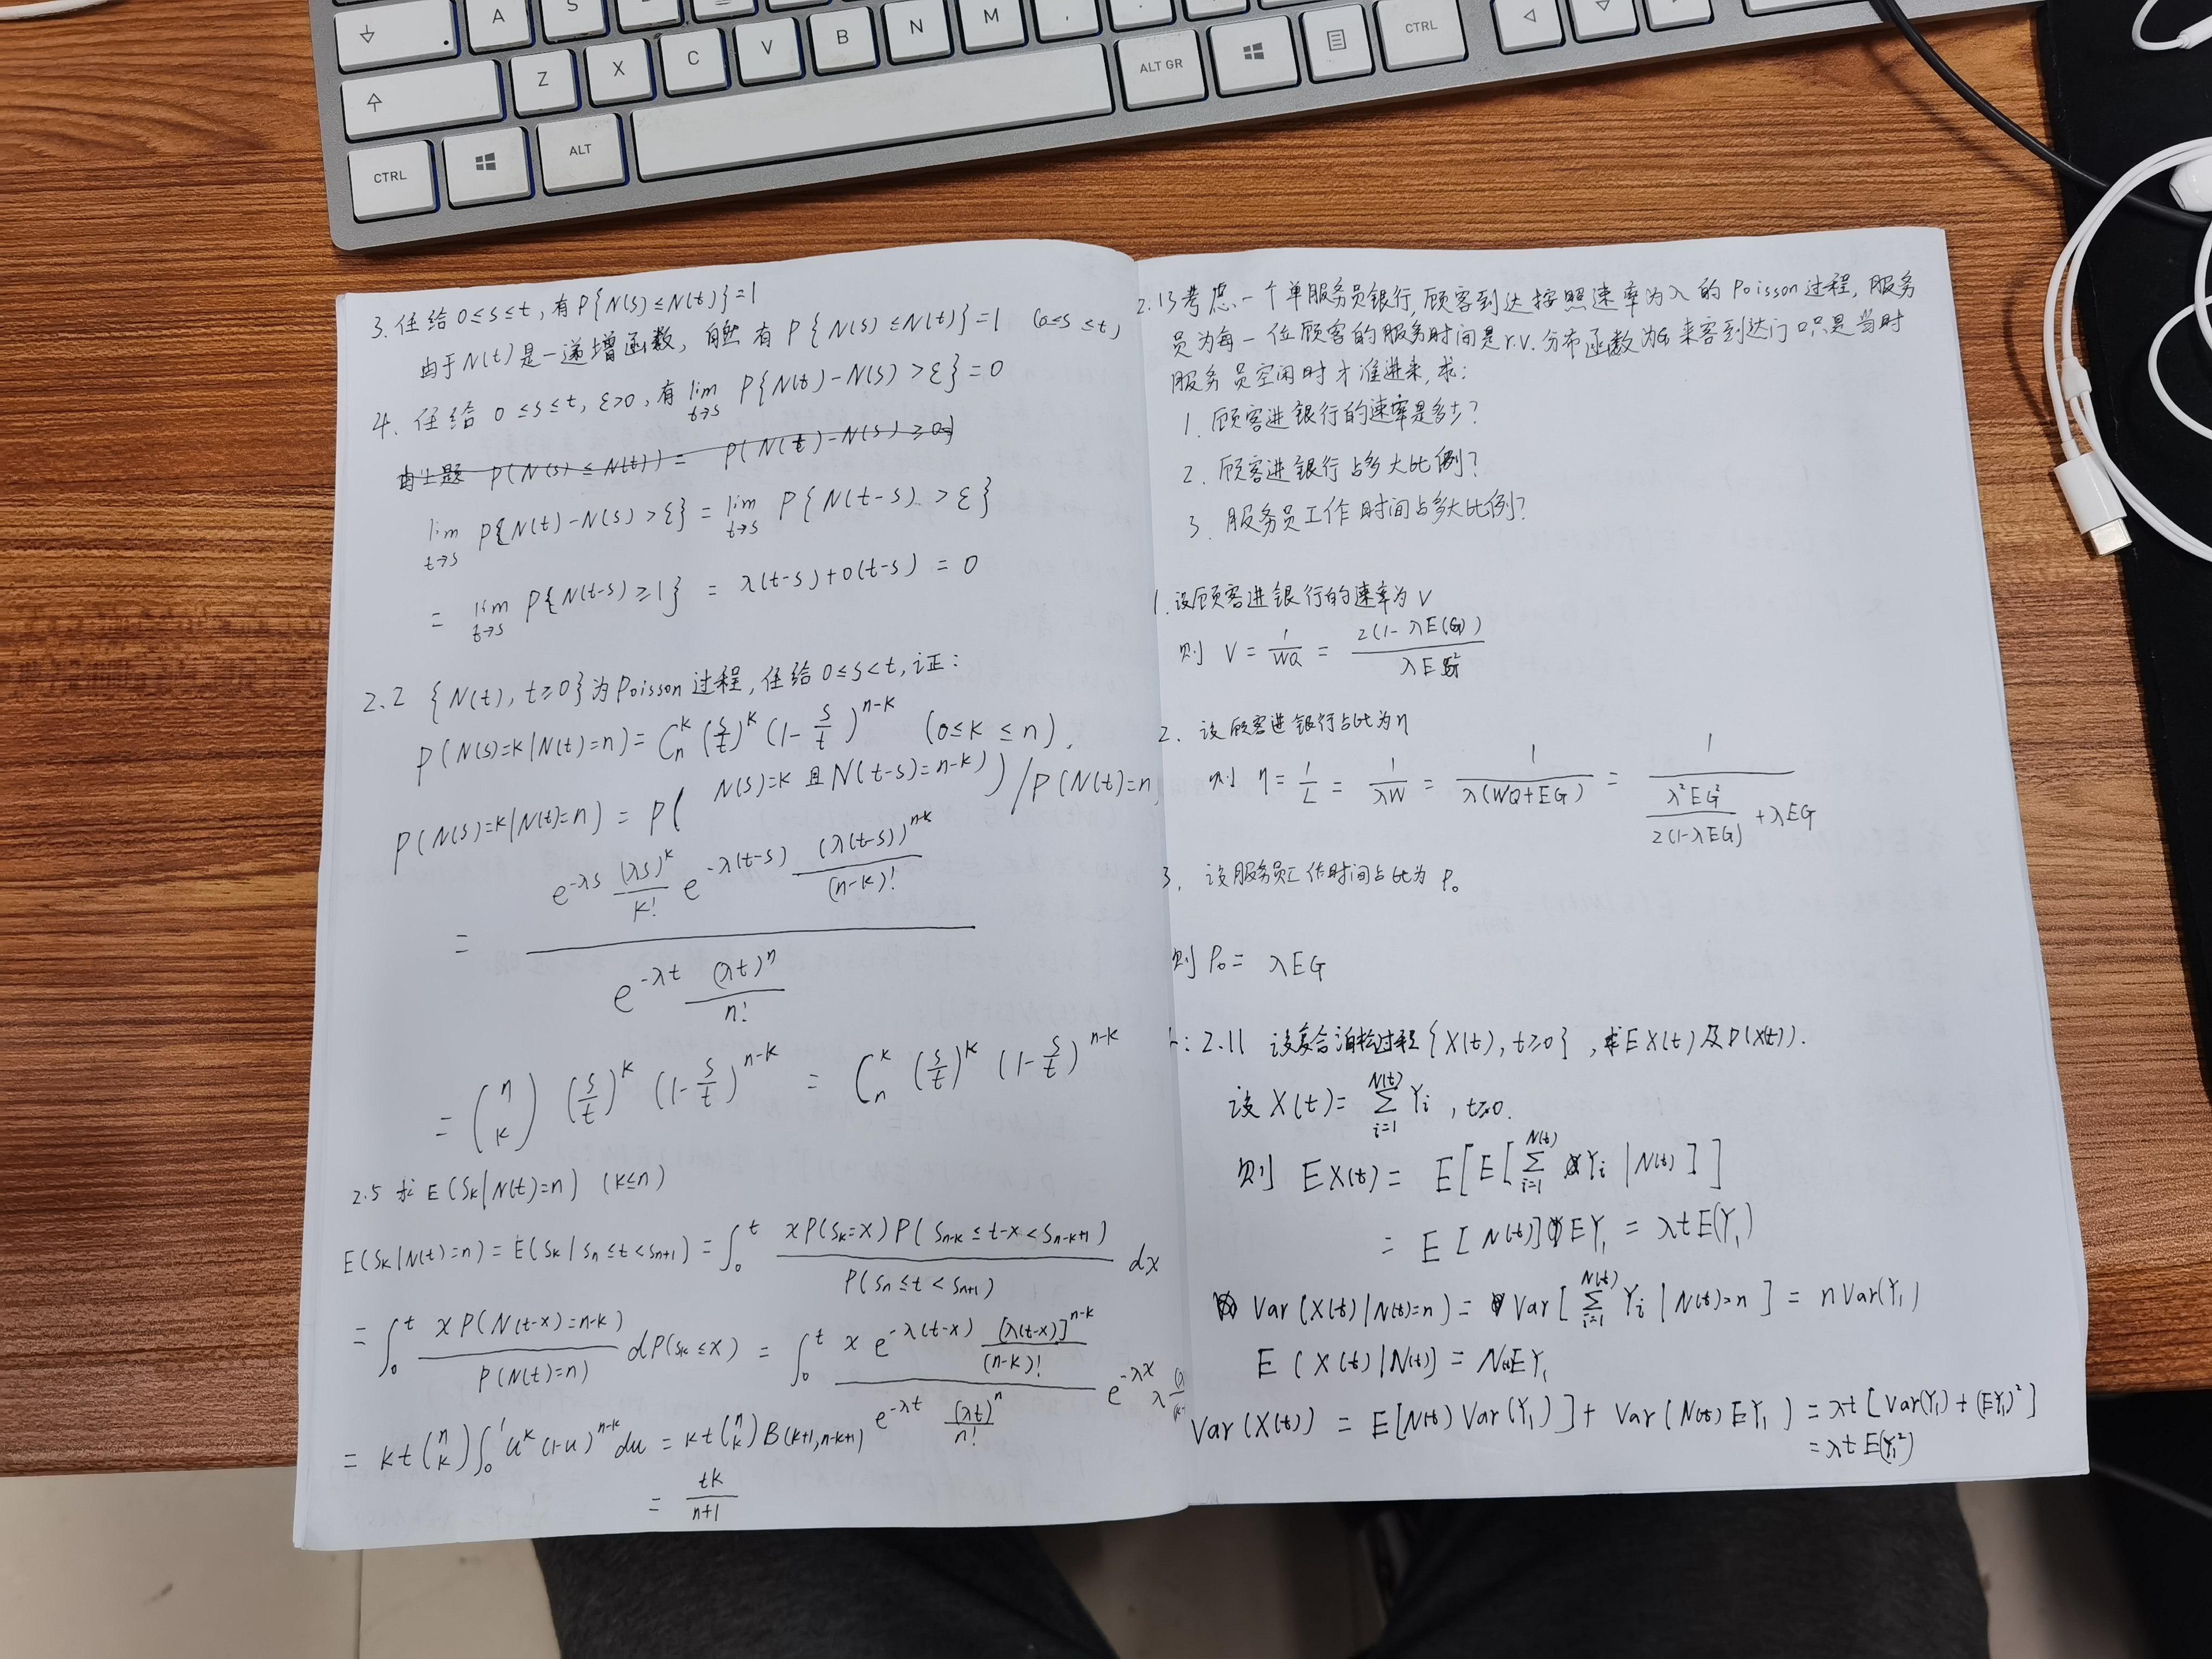 A
S
Z
X
C
V
B
N
M
ALT GR
CTRL
CTRL
ALT
3.任给 0≤s≤t, 有 P{N(s)≤N(t)}=1
由于N(t)是一递增函数, 自然有 P{N(s)≤N(t)}=1 (0≤s≤t)
4. 任给 0≤s≤t, ε>0, 有 lim_{t→s} P{N(t)-N(s)>ε}=0
由上题 P(N(s)≤N(t)) = P(N(t)-N(s)≥0)
lim_{t→s} P{N(t)-N(s)>ε} = lim_{t→s} P{N(t-s)>ε}
= lim_{t→s} P{N(t-s)≥1} = λ(t-s)+o(t-s) = 0
2.2 {N(t), t≥0}为Poisson过程, 任给 0≤s<t, 证:
P(N(s)=k|N(t)=n) = C_n^k (s/t)^k (1-s/t)^{n-k} (0≤k≤n).
P(N(s)=k|N(t)=n) = P( N(s)=k 且 N(t-s)=n-k) ) / P(N(t)=n
= e^{-λs} (λs)^k/k! e^{-λ(t-s)} (λ(t-s))^{n-k}/(n-k)! / e^{-λt} (λt)^n/n!
= (n k) (s/t)^k (1-s/t)^{n-k} = C_n^k (s/t)^k (1-s/t)^{n-k}
2.5 求 E(S_k|N(t)=n) (k≤n)
E(S_k|N(t)=n) = E(S_k|S_n≤t<S_{n+1}) = ∫_0^t xP(S_k=x)P(S_{n-k}≤t-x<S_{n-k+1}) / P(S_n≤t<S_{n+1}) dx
= ∫_0^t xP(N(t-x)=n-k) / P(N(t)=n) dP(S_k≤x) = ∫_0^t x e^{-λ(t-x)} [λ(t-x)]^{n-k}/(n-k)! / e^{-λt} (λt)^n/n! e^{-λx} λ
= kt (n k) ∫_0^1 u^k (1-u)^{n-k} du = kt (n k) B(k+1, n-k+1)
= tk/(n+1)
2.13 考虑一个单服务员银行, 顾客到达按照速率为λ的Poisson过程, 服务
员为每一位顾客的服务时间是r.v. 分布函数为G 来客到达门口只是当时
服务员空闲时才准进来, 求:
1. 顾客进银行的速率是多少?
2. 顾客进银行占多大比例?
3. 服务员工作时间占多大比例?
1.设顾客进银行的速率为V
则 V = 1/WQ = 2(1-λE(G)) / λEG²
2. 设顾客进银行占比为η
则 η = 1/L = 1/λW = 1/λ(WQ+EG) = 1 / (λ²EG²/2(1-λEG) + λEG)
3. 设服务员工作时间占比为 P₀
则 P₀ = λEG
: 2.11 设复合泊松过程{X(t), t≥0}, 求EX(t)及D(X(t)).
设 X(t) = Σ_{i=1}^{N(t)} Y_i, t≥0.
则 EX(t) = E[E[Σ_{i=1}^{N(t)} Y_i | N(t)]]
= E[N(t)]EY₁ = λtE(Y₁)
Var(X(t)|N(t)=n) = Var[Σ_{i=1}^{N(t)} Y_i | N(t)=n] = nVar(Y₁)
E(X(t)|N(t)] = N(t)EY₁
Var(X(t)) = E[N(t)Var(Y₁)] + Var(N(t)EY₁) = λt[Var(Y₁)+(EY₁)²]
= λtE(Y₁²)